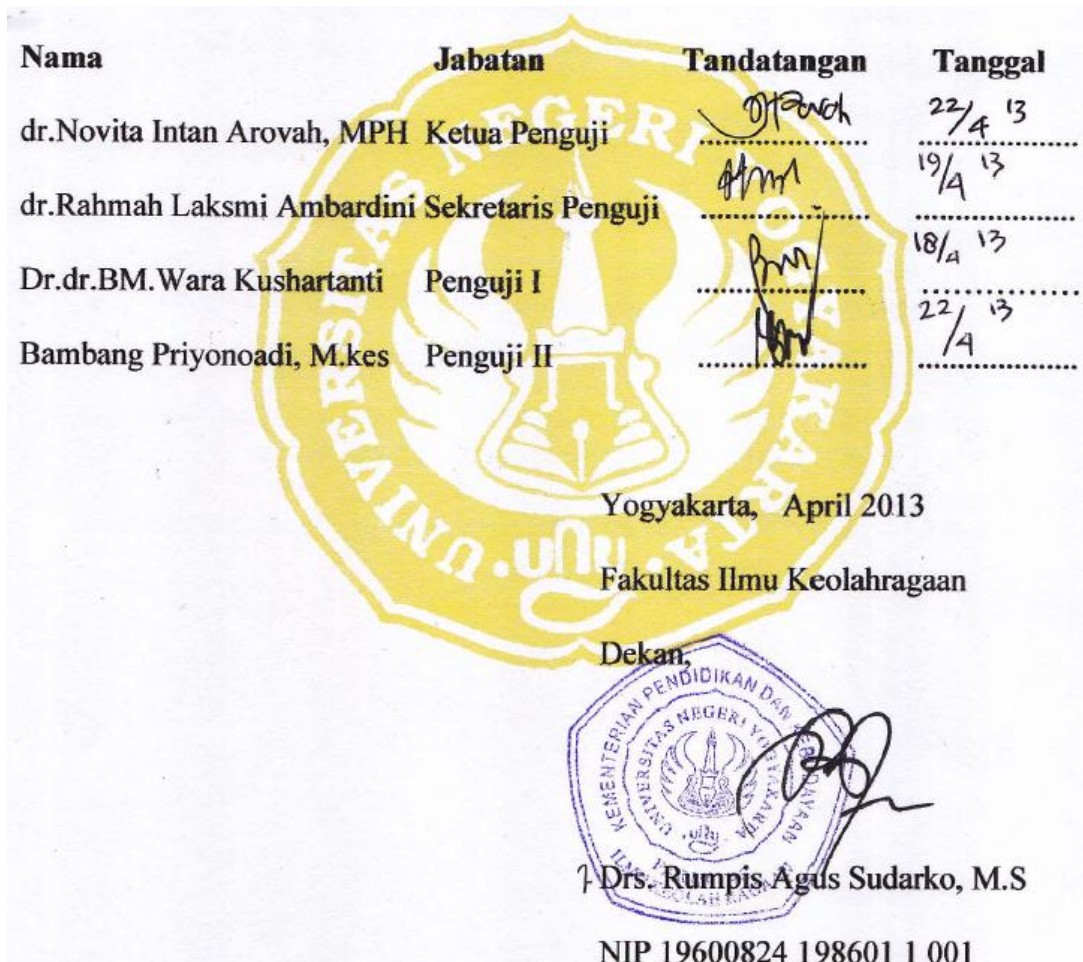 Nama Jabatan Tandatangan Tanggal
dr.Novita Intan Arovah, MPH Ketua Penguji 22/4 13
dr.Rahmah Laksmi Ambardini Sekretaris Penguji 19/4 13
Dr.dr.BM.Wara Kushartanti Penguji I 18/4 13
Bambang Priyonoadi, M.kes Penguji II 22/4 13
UNIVERSITAS NEGERI YOGYAKARTA
uny
Yogyakarta, April 2013
Fakultas Ilmu Keolahragaan
Dekan,
KEMENTERIAN PENDIDIKAN DAN KEBUDAYAAN
UNIVERSITAS NEGERI YOGYAKARTA
uny
Drs. Rumpis Agus Sudarko, M.S
NIP 19600824 198601 1 001